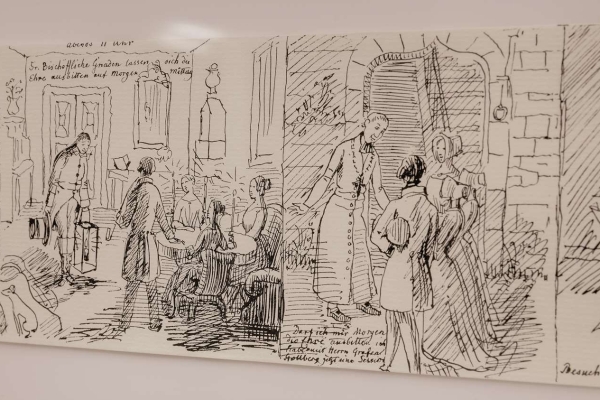 abends 11 Uhr
Sr. Bischöffliche Gnaden lassen sich die
Ehre ausbitten auf Morgen Mittag
Darf ich mir Morgen
die Ehre ausbitten ich
habe mit Herrn Grafen
Stollberg jetzt eine
Besuch